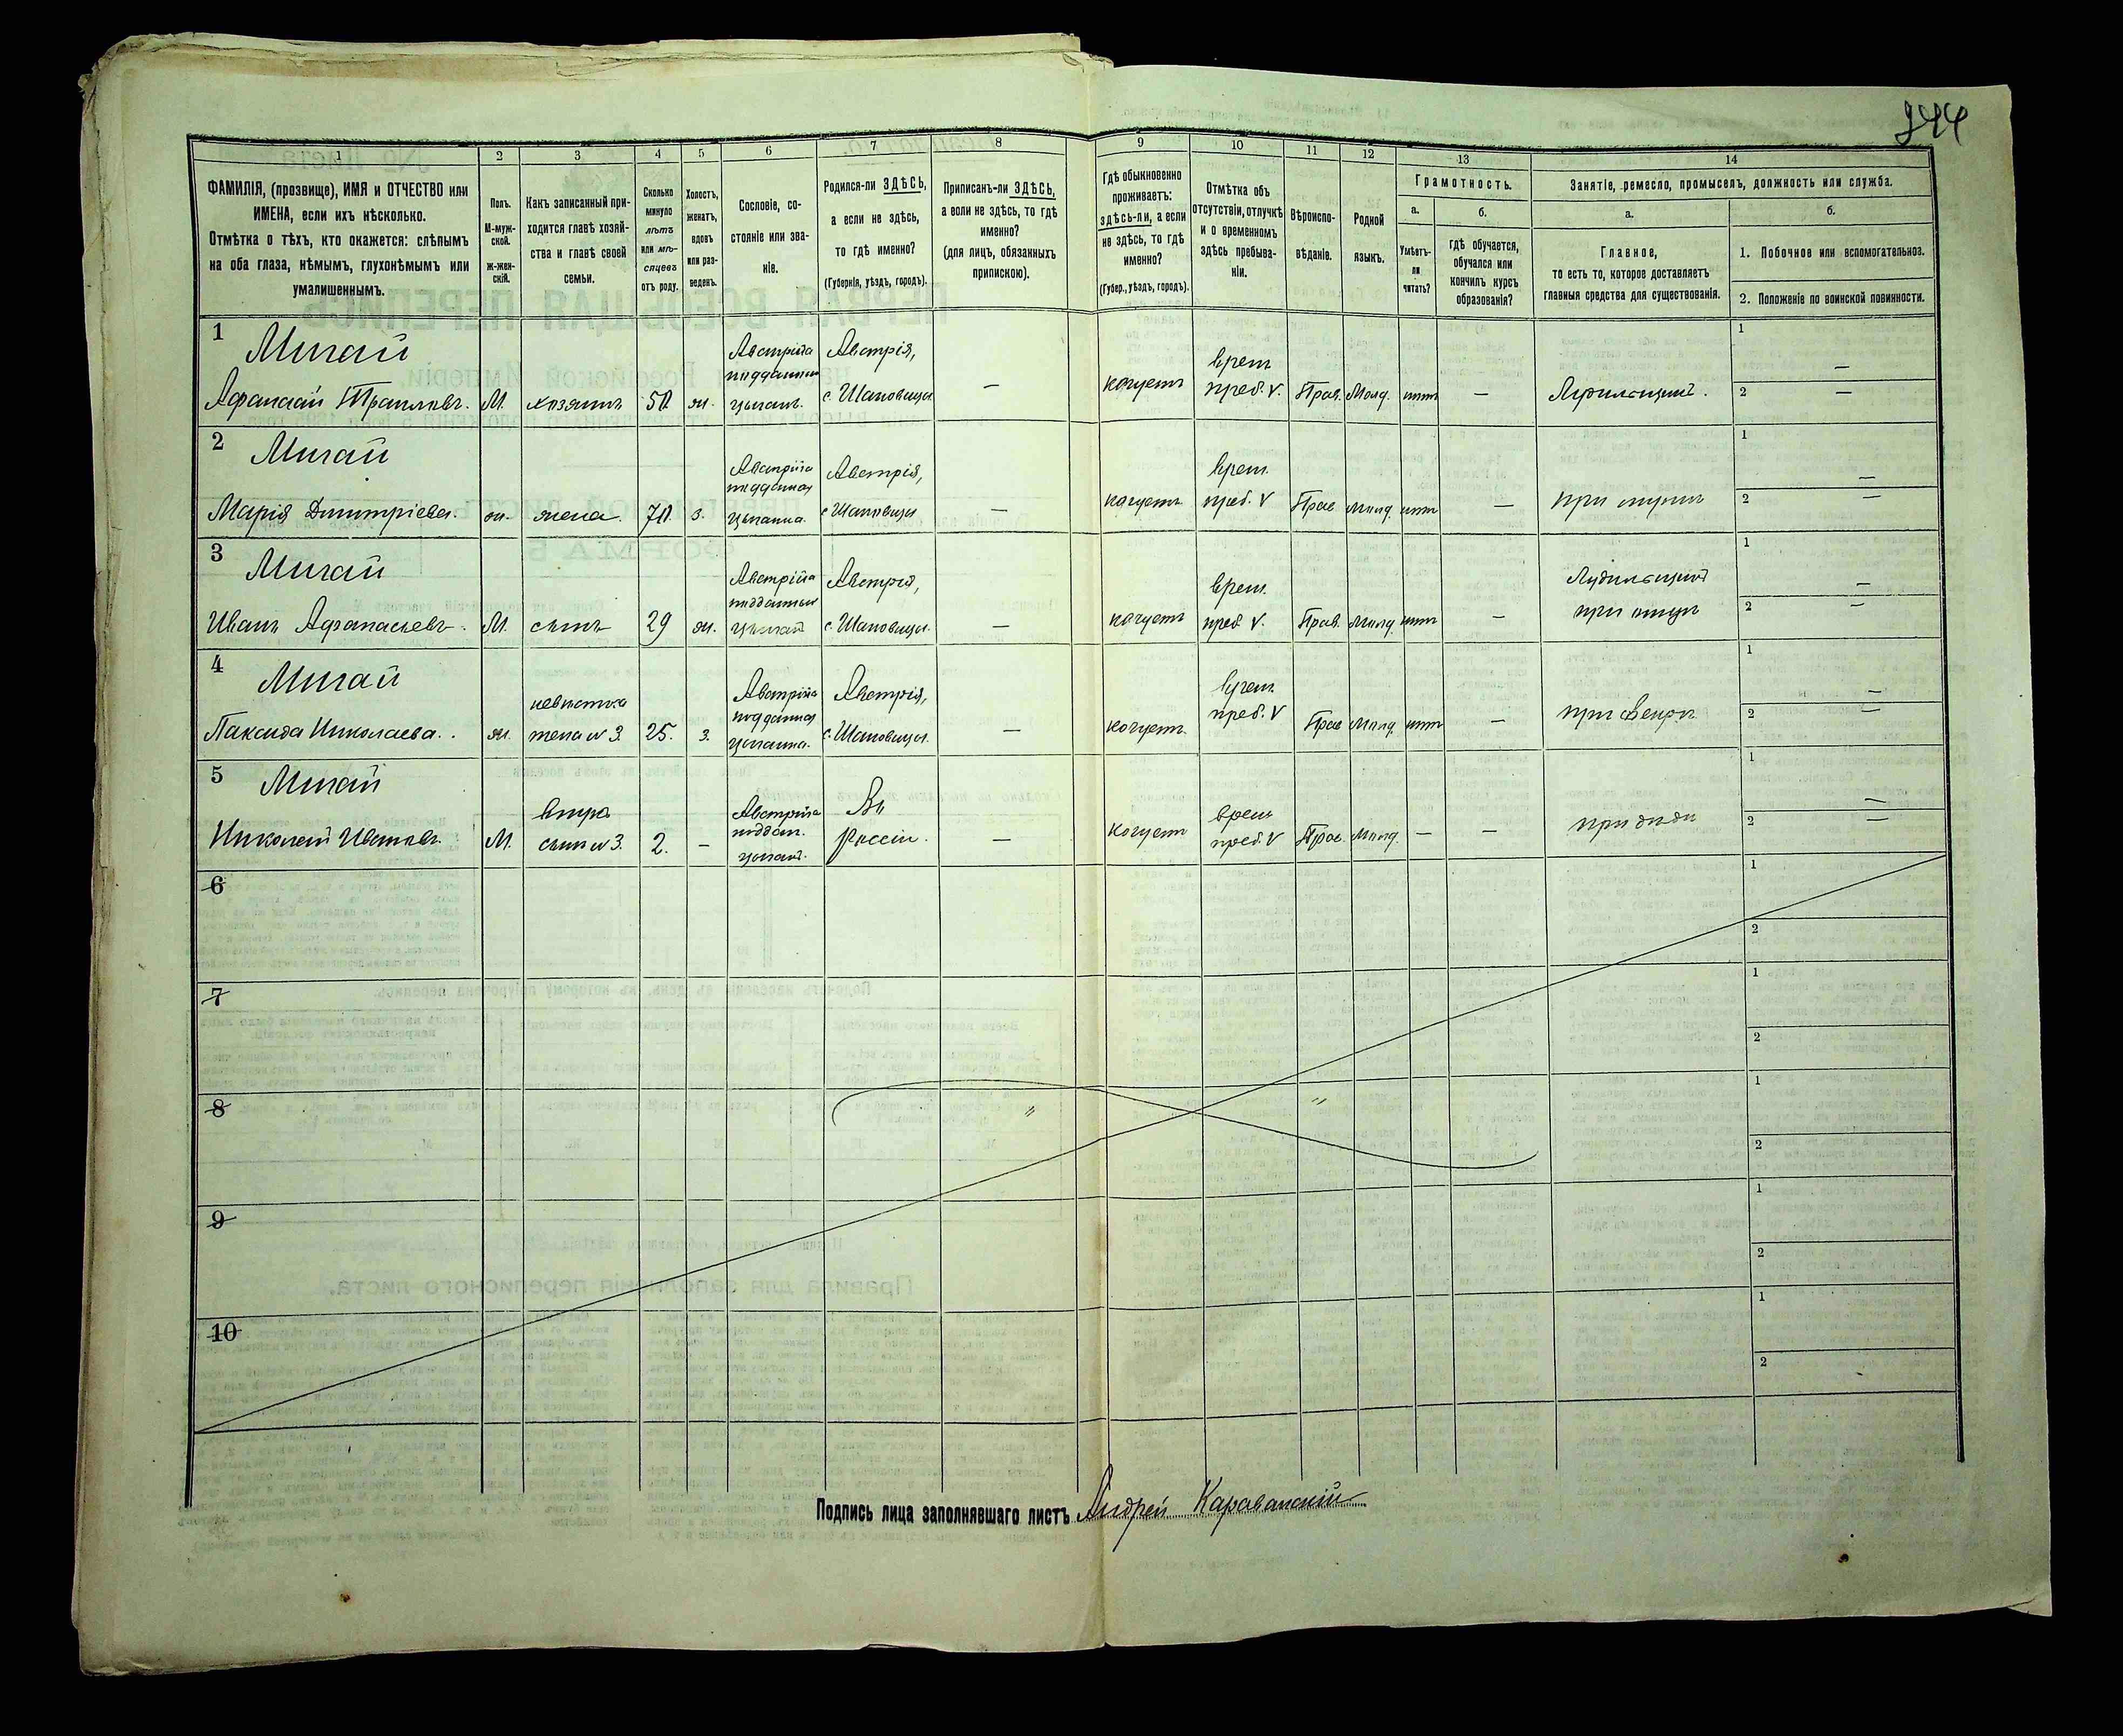 244
1 2 3 4 5 6 7 8 9 10 11 12 13 14
ФАМИЛІЯ, (прозвище), ИМЯ и ОТЧЕСТВО или
ИМЕНА, если ихъ нѣсколько.
Отмѣтка о тѣхъ, кто окажется: слѣпымъ
на оба глаза, нѣмымъ, глухонѣмымъ или
умалишеннымъ.
Полъ.
М-муж-
ской.
ж-жен-
скій.
Какъ записанный при-
ходится главѣ хозяй-
ства и главѣ своей
семьи.
Сколько
минуло
лѣтъ
или мѣ-
сяцевъ
отъ роду.
Холостъ,
женатъ,
вдовъ
или раз-
веденъ.
Сословіе, со-
стояніе или зва-
ніе.
Родился-ли ЗДѢСЬ,
а если не здѣсь,
то гдѣ именно?
(Губернія, уѣздъ, городъ).
Приписанъ-ли ЗДѢСЬ,
а если не здѣсь, то гдѣ
именно?
(для лицъ, обязанныхъ
припискою).
Гдѣ обыкновенно
проживаетъ:
здѣсь-ли, а если
не здѣсь, то гдѣ
именно?
(Губер., уѣздъ, городъ).
Отмѣтка объ
отсутствіи, отлучкѣ
и о временномъ
здѣсь пребыва-
ніи.
Вѣроиспо-
вѣданіе.
Родной
языкъ.
Грамотность.
а.
Умѣетъ-
ли
читать?
б.
гдѣ обучается,
обучался или
кончилъ курсъ
образованія?
Занятіе, ремесло, промыселъ, должность или служба.
а.
Главное,
то есть то, которое доставляетъ
главныя средства для существованія.
б.
1. Побочное или вспомогательное.
2. Положеніе по воинской повинности.
1 Михай Австрійск Австрія, врем 1 —
подданный
Афанасій М. хозяинъ 50 ж. цыганъ. с. Шиповцы — кочуетъ преб. V. Прав. Молд. нѣтъ — Лудильщикъ. 2 —
2 Михай Австрійск Австрія, врем. 1 —
подданная
Марія Дмитріева. ж. жена. 70. з. цыганка. с Шиповцы — кочуетъ преб. V Прав Молд. нѣтъ — при мужѣ 2 —
3 Михай Австрійск Австрія, врем. Лудильщикъ 1 —
подданный
Иванъ Афанасьевъ. М. сынъ 29 ж. цыган с. Шиповцы. — кочуетъ преб V. Прав. Молд. нѣтъ — при отцѣ 2 —
4 Михай невѣстка Австрійск Австрія, врем. 1 —
подданная
Николаева. ж. жена № 3. 25. з. цыганка. с. Шиповцы. — кочуетъ. преб. V Прав Молд. нѣтъ — при свекрѣ 2 —
5 Михай внукъ Австрійск Въ врем 1 —
поддан.
Николай Ивановъ. М. сынъ № 3. 2. — цыган. Россіи. — кочуетъ преб. V Прав. Молд. — — при дѣдѣ 2 —
6 1
2
7 1
2
8 " " 1
2
9 1
2
10 1
2
Подпись лица заполнявшаго листъ Андрей Караванскій